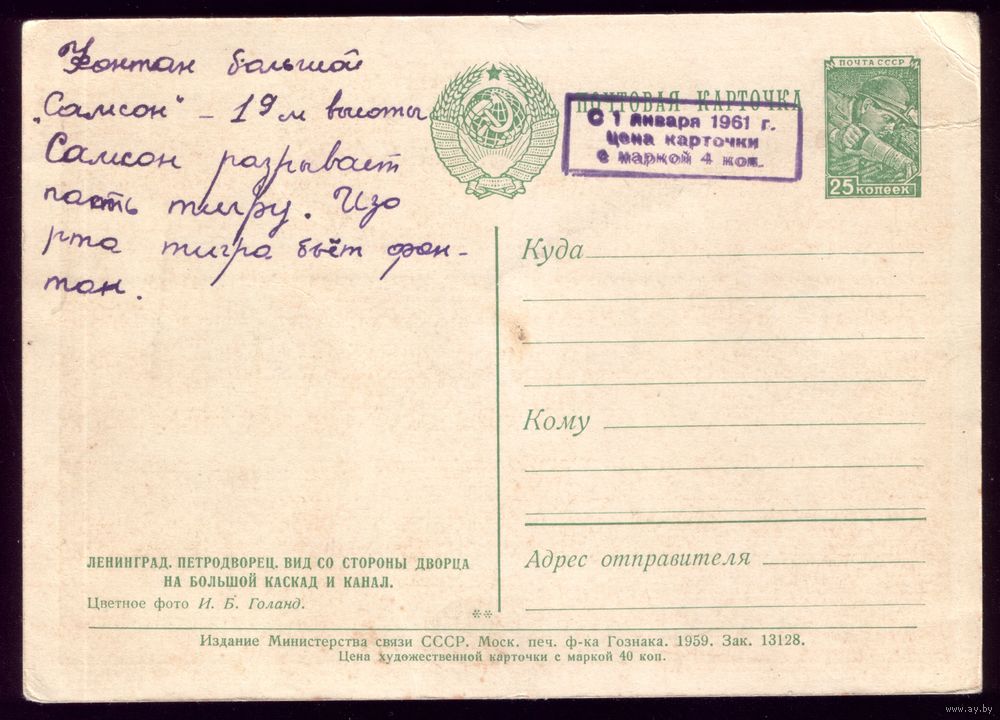 Фонтан большой
„Самсон" – 19 м высоты
Самсон разрывает
пасть тигру. Изо
рта тигра бьёт фон-
тан.
ПОЧТОВАЯ КАРТОЧКА
С 1 января 1961 г.
цена карточки
с маркой 4 коп.
ПОЧТА СССР
25 копеек
Куда
Кому
Адрес отправителя
ЛЕНИНГРАД. ПЕТРОДВОРЕЦ. ВИД СО СТОРОНЫ ДВОРЦА
НА БОЛЬШОЙ КАСКАД И КАНАЛ.
Цветное фото И. Б. Голанд.
**
Издание Министерства связи СССР. Моск. печ. ф-ка Гознака. 1959. Зак. 13128.
Цена художественной карточки с маркой 40 коп.
www.ay.by